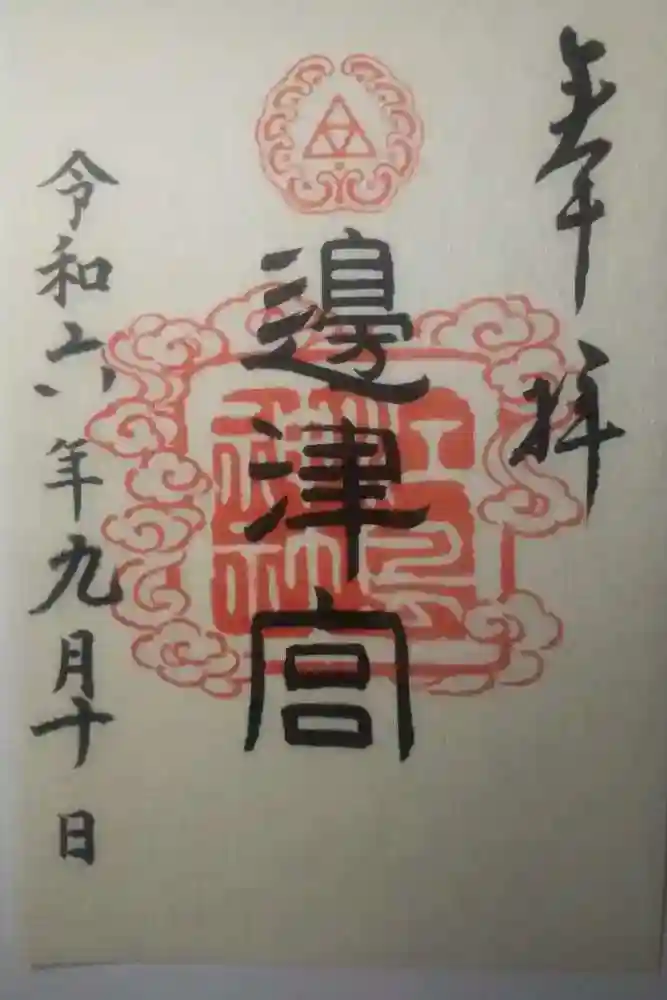 奉拝
邊津宮
令和六年九月十日